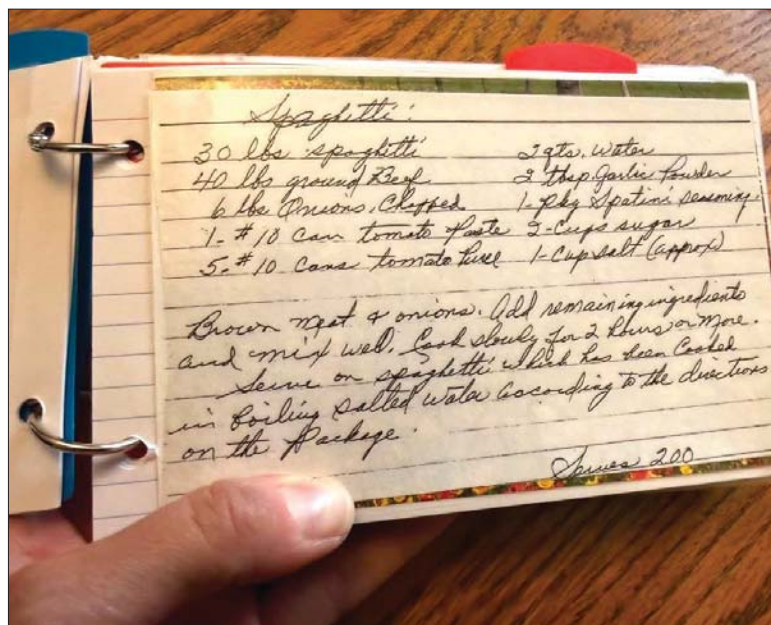 Spaghetti:
30 lbs spaghetti
40 lbs ground Beef
6 lbs Onions, Chopped
1-#10 can tomato Paste
5-#10 cans tomato Puree
2 qts. water
2 tbsp. Garlic Powder
1-pkg Spatini seasoning.
2-Cups sugar
1-Cup salt (approx)
Brown meat & onions. Add remaining ingredients
and mix well. Cook slowly for 2 hours or more.
Serve on spaghetti which has been cooked
in boiling salted water according to the directions
on the Package.
Serves 200